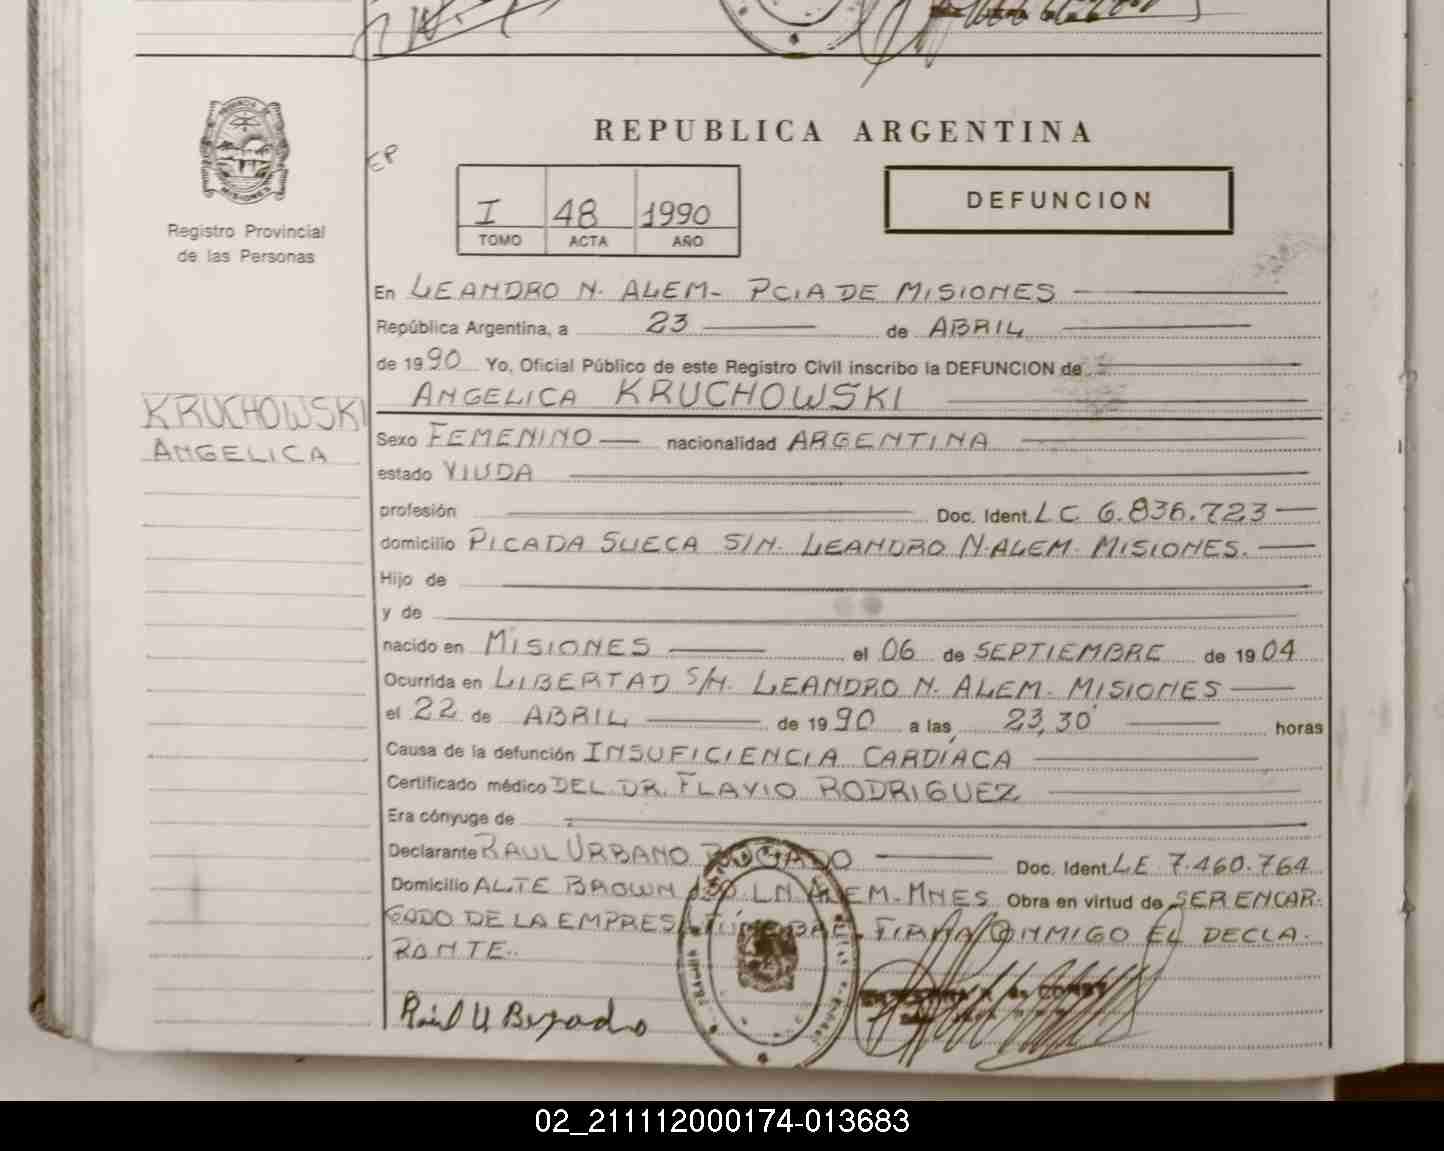 REPUBLICA ARGENTINA
EP
I 48 1990
TOMO ACTA AÑO
DEFUNCION
Registro Provincial
de las Personas
MISIONES
KRUCHOWSKI
ANGELICA
En LEANDRO N. ALEM- PCIA DE MISIONES
República Argentina, a 23 de ABRIL
de 1990 Yo, Oficial Público de este Registro Civil inscribo la DEFUNCION de
ANGELICA KRUCHOWSKI
Sexo FEMENINO nacionalidad ARGENTINA
estado VIUDA
profesión Doc. Ident. LC 6.836.723
domicilio PICADA SUECA S/N. LEANDRO N. ALEM. MISIONES.
Hijo de
y de
nacido en MISIONES el 06 de SEPTIEMBRE de 1904
Ocurrida en LIBERTAD S/N. LEANDRO N. ALEM. MISIONES
el 22 de ABRIL de 1990 a las 23,30 horas
Causa de la defunción INSUFICIENCIA CARDIACA
Certificado médico DEL DR. FLAVIO RODRIGUEZ
Era cónyuge de
Declarante RAUL URBANO Doc. Ident. LE 7.460.764
Domicilio ALTE BROWN LN ALEM. MNES Obra en virtud de SER ENCAR-
GADO DE LA EMPRESA FÚNEBRE. FIRMA CONMIGO EL DECLA-
RANTE.
Raúl U
02_211112000174-013683